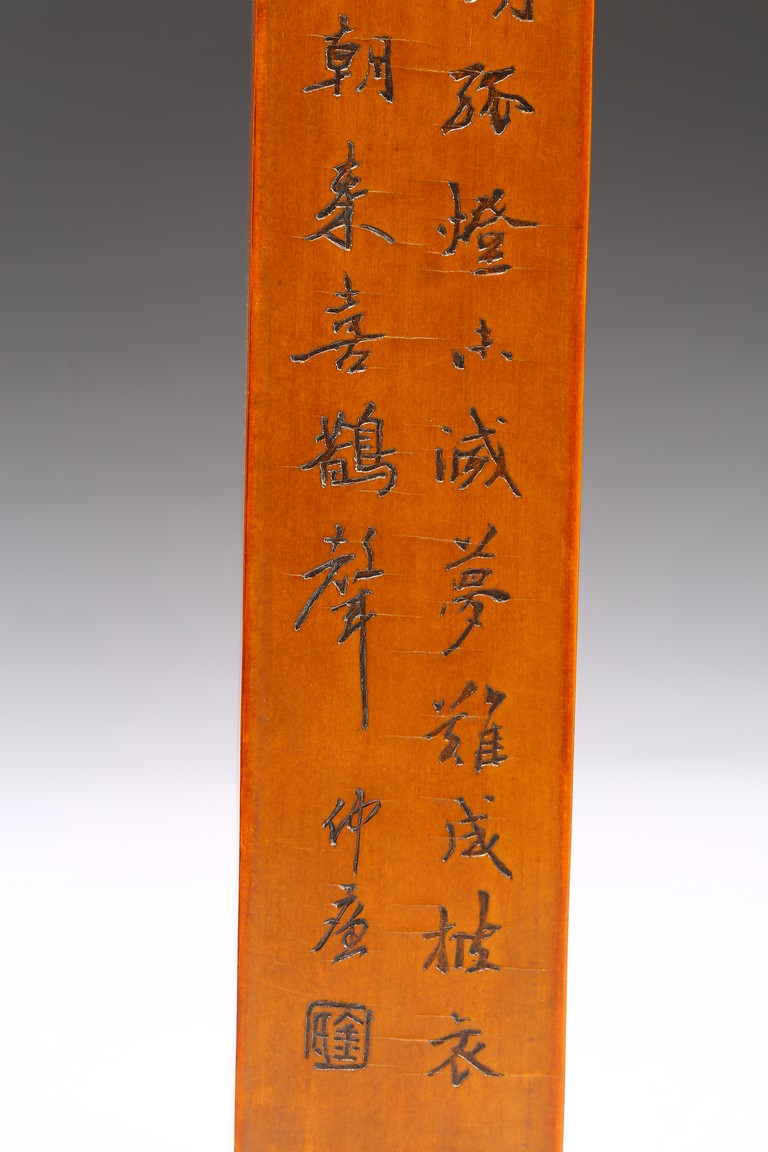 孤燈未滅夢難成披衣
朝来喜鵲聲
仲